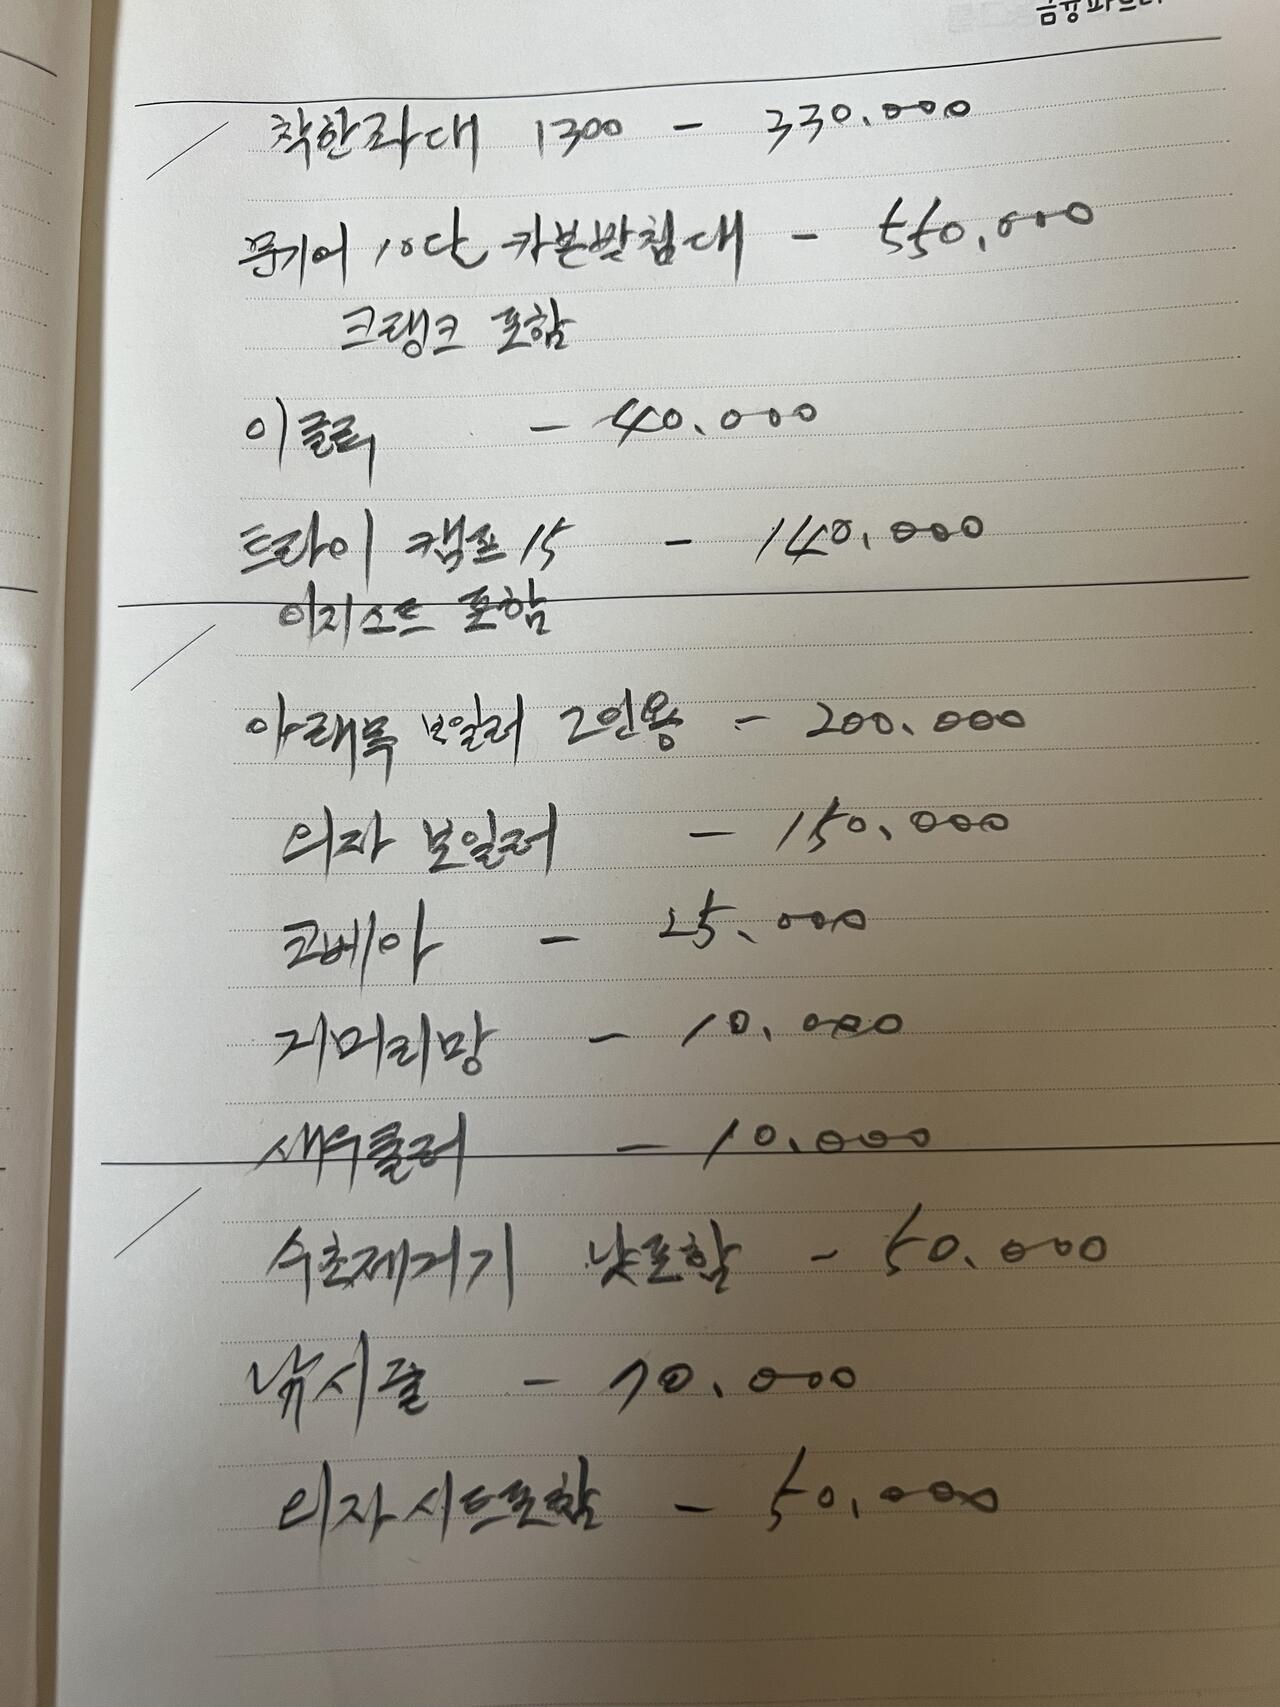 착한좌대 1300 - 330.000
문기어 10단 카본받침대 - 550.000
크랭크 포함
이글루 - 40.000
트라이 캠프 15 - 140.000
이지스트 포함
아래목 보일러 2인용 - 200.000
의자 보일러 - 150.000
코베아 - 25.000
거머리망 - 10.000
새우쿨러 - 10.000
수초제거기 낫포함 - 50.000
낚시줄 - 10.000
의자시트포함 - 50.000